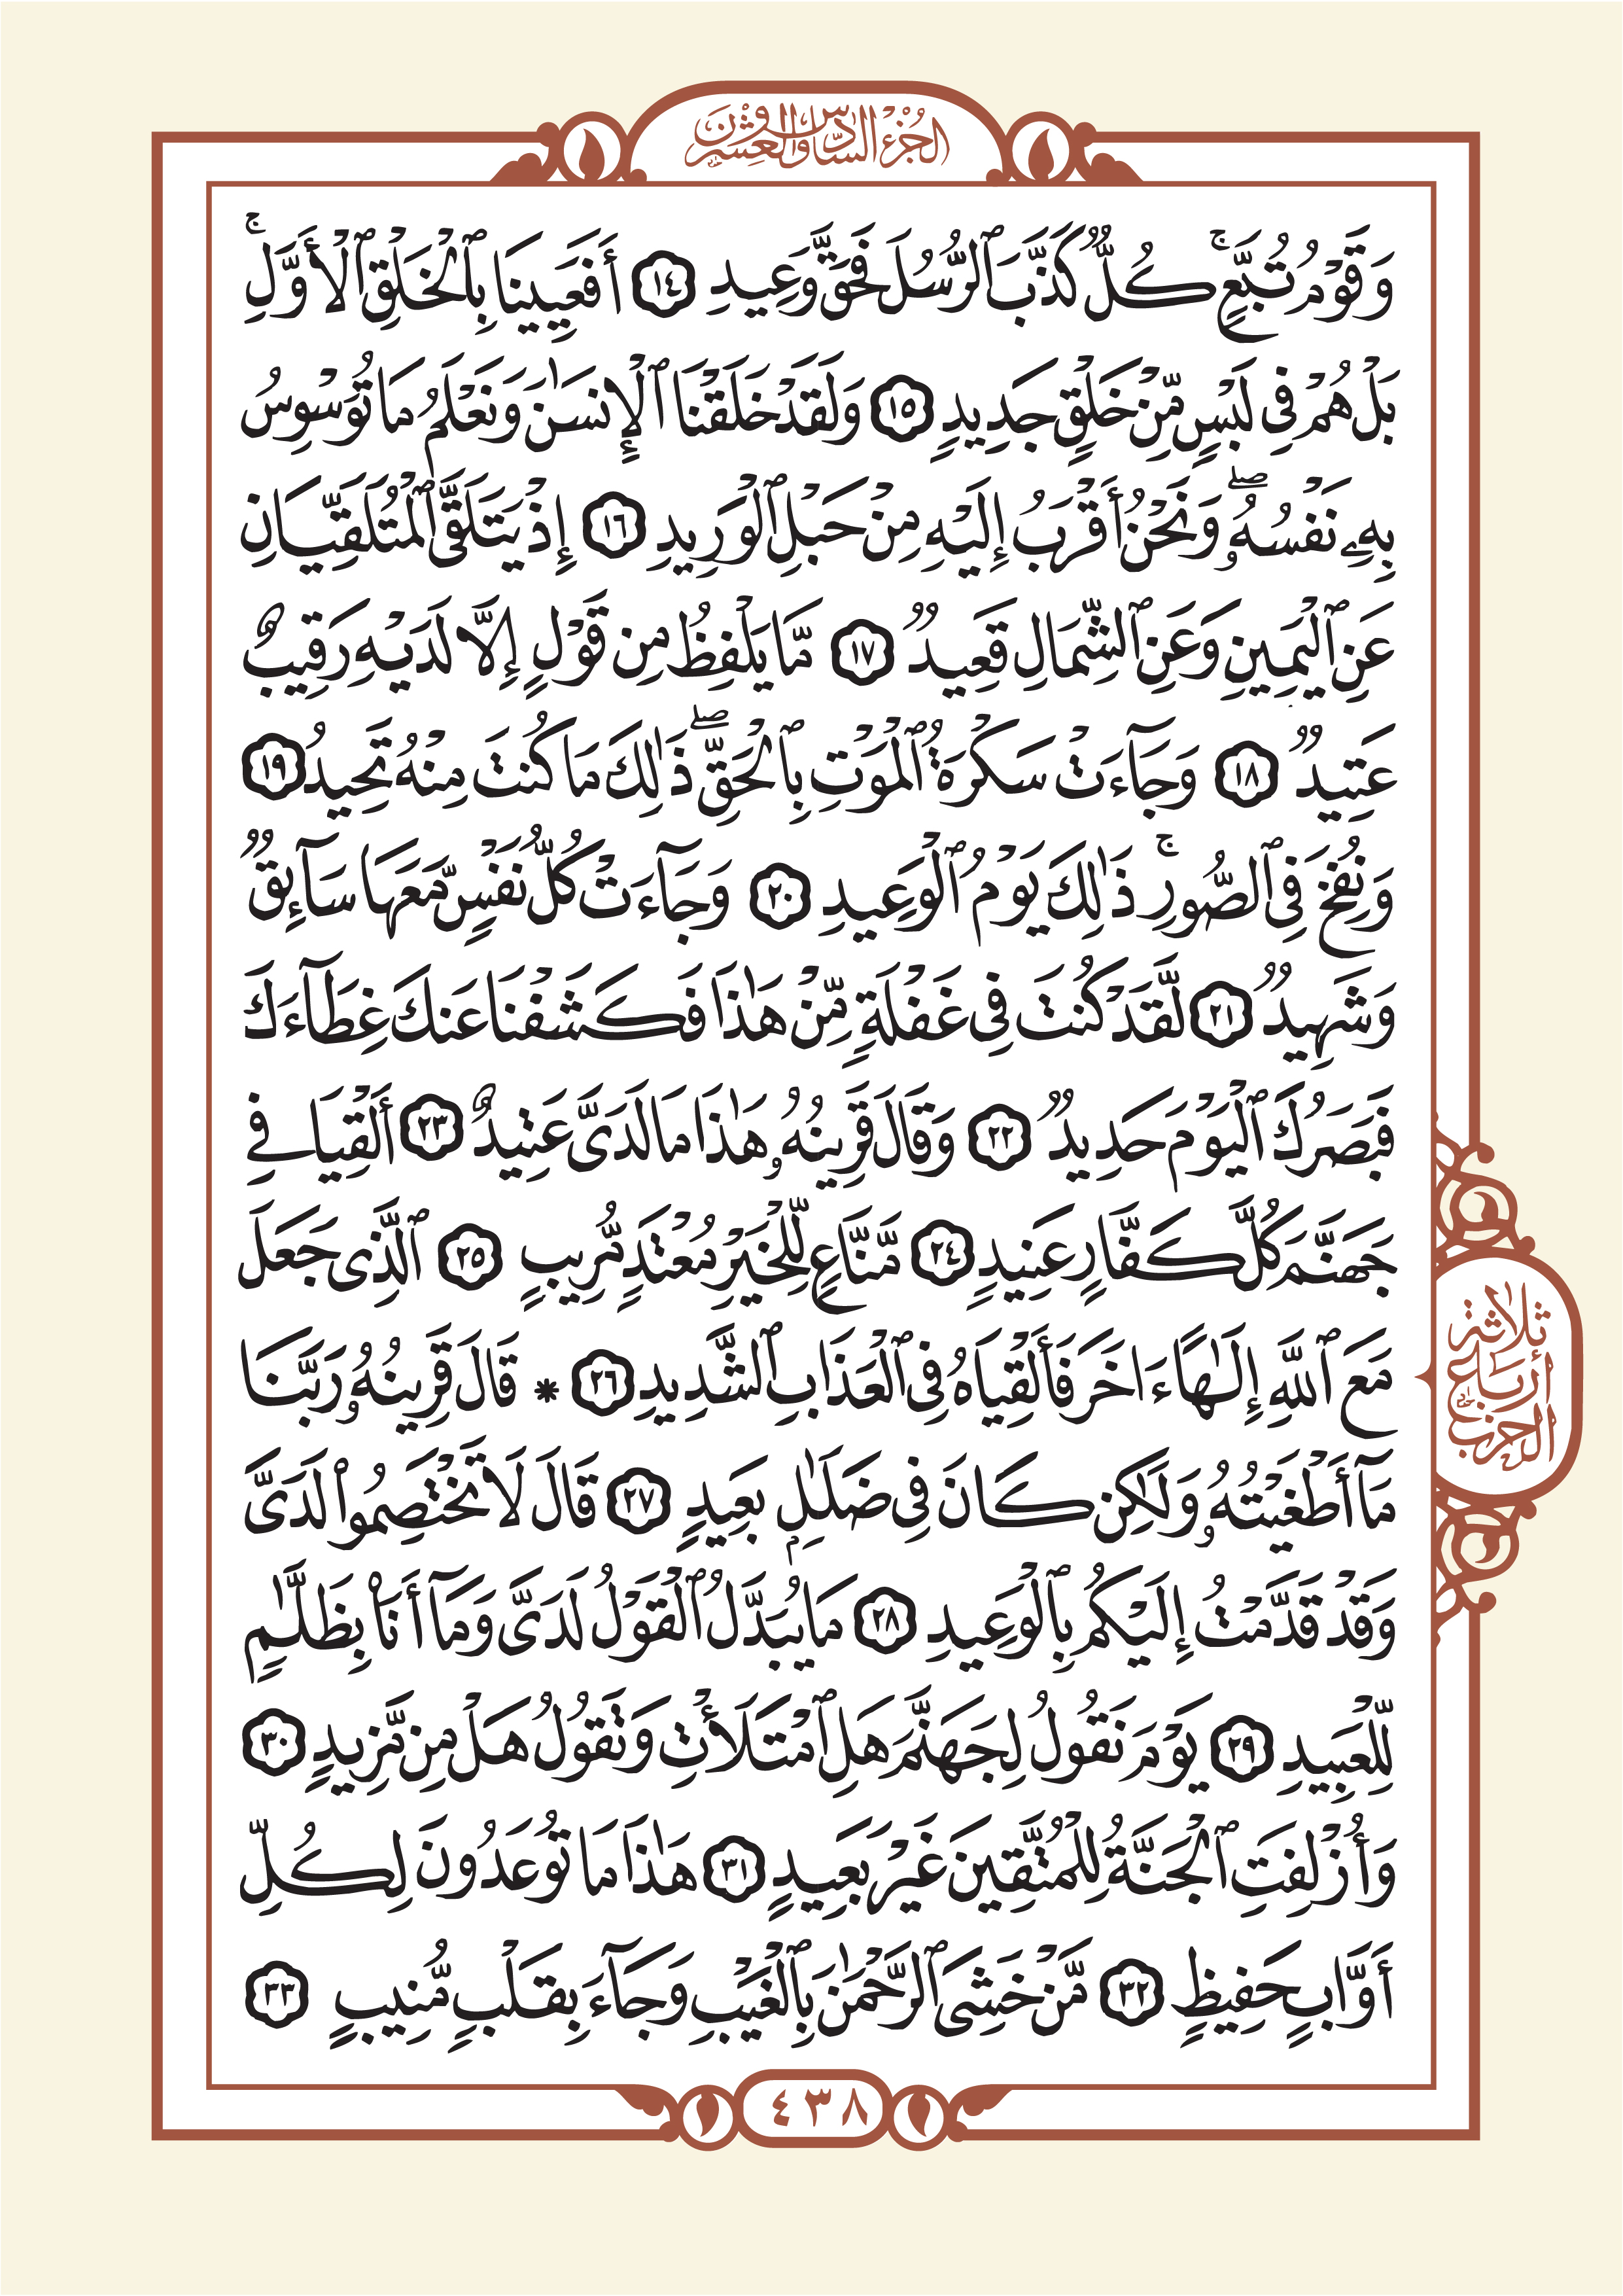 الجزء السادس والعشرون
وَقَوْمُ تُبَّعٍۚ كُلٌّ كَذَّبَ ٱلرُّسُلَ فَحَقَّ وَعِيدِ ١٤ أَفَعَيِينَا بِٱلْخَلْقِ ٱلْأَوَّلِۚ
بَلْ هُمْ فِى لَبْسٍ مِّنْ خَلْقٍ جَدِيدٍ ١٥ وَلَقَدْ خَلَقْنَا ٱلْإِنسَٰنَ وَنَعْلَمُ مَا تُوَسْوِسُ
بِهِۦ نَفْسُهُۥۖ وَنَحْنُ أَقْرَبُ إِلَيْهِ مِنْ حَبْلِ ٱلْوَرِيدِ ١٦ إِذْ يَتَلَقَّى ٱلْمُتَلَقِّيَانِ
عَنِ ٱلْيَمِينِ وَعَنِ ٱلشِّمَالِ قَعِيدٌ ١٧ مَّا يَلْفِظُ مِن قَوْلٍ إِلَّا لَدَيْهِ رَقِيبٌ
عَتِيدٌ ١٨ وَجَآءَتْ سَكْرَةُ ٱلْمَوْتِ بِٱلْحَقِّۖ ذَٰلِكَ مَا كُنتَ مِنْهُ تَحِيدُ ١٩
وَنُفِخَ فِى ٱلصُّورِۚ ذَٰلِكَ يَوْمُ ٱلْوَعِيدِ ٢٠ وَجَآءَتْ كُلُّ نَفْسٍ مَّعَهَا سَآئِقٌ
وَشَهِيدٌ ٢١ لَّقَدْ كُنتَ فِى غَفْلَةٍ مِّنْ هَٰذَا فَكَشَفْنَا عَنكَ غِطَآءَكَ
فَبَصَرُكَ ٱلْيَوْمَ حَدِيدٌ ٢٢ وَقَالَ قَرِينُهُۥ هَٰذَا مَا لَدَىَّ عَتِيدٌ ٢٣ أَلْقِيَا فِى
جَهَنَّمَ كُلَّ كَفَّارٍ عَنِيدٍ ٢٤ مَّنَّاعٍ لِّلْخَيْرِ مُعْتَدٍ مُّرِيبٍ ٢٥ ٱلَّذِى جَعَلَ
مَعَ ٱللَّهِ إِلَٰهًا ءَاخَرَ فَأَلْقِيَاهُ فِى ٱلْعَذَابِ ٱلشَّدِيدِ ٢٦ * قَالَ قَرِينُهُۥ رَبَّنَا
مَآ أَطْغَيْتُهُۥ وَلَٰكِن كَانَ فِى ضَلَٰلٍۭ بَعِيدٍ ٢٧ قَالَ لَا تَخْتَصِمُوا۟ لَدَىَّ
وَقَدْ قَدَّمْتُ إِلَيْكُم بِٱلْوَعِيدِ ٢٨ مَا يُبَدَّلُ ٱلْقَوْلُ لَدَىَّ وَمَآ أَنَا۠ بِظَلَّٰمٍ
لِّلْعَبِيدِ ٢٩ يَوْمَ نَقُولُ لِجَهَنَّمَ هَلِ ٱمْتَلَأْتِ وَتَقُولُ هَلْ مِن مَّزِيدٍ ٣٠
وَأُزْلِفَتِ ٱلْجَنَّةُ لِلْمُتَّقِينَ غَيْرَ بَعِيدٍ ٣١ هَٰذَا مَا تُوعَدُونَ لِكُلِّ
أَوَّابٍ حَفِيظٍ ٣٢ مَّنْ خَشِىَ ٱلرَّحْمَٰنَ بِٱلْغَيْبِ وَجَآءَ بِقَلْبٍ مُّنِيبٍ ٣٣
ثلاثة
أرباع
الحزب
٤٣٨